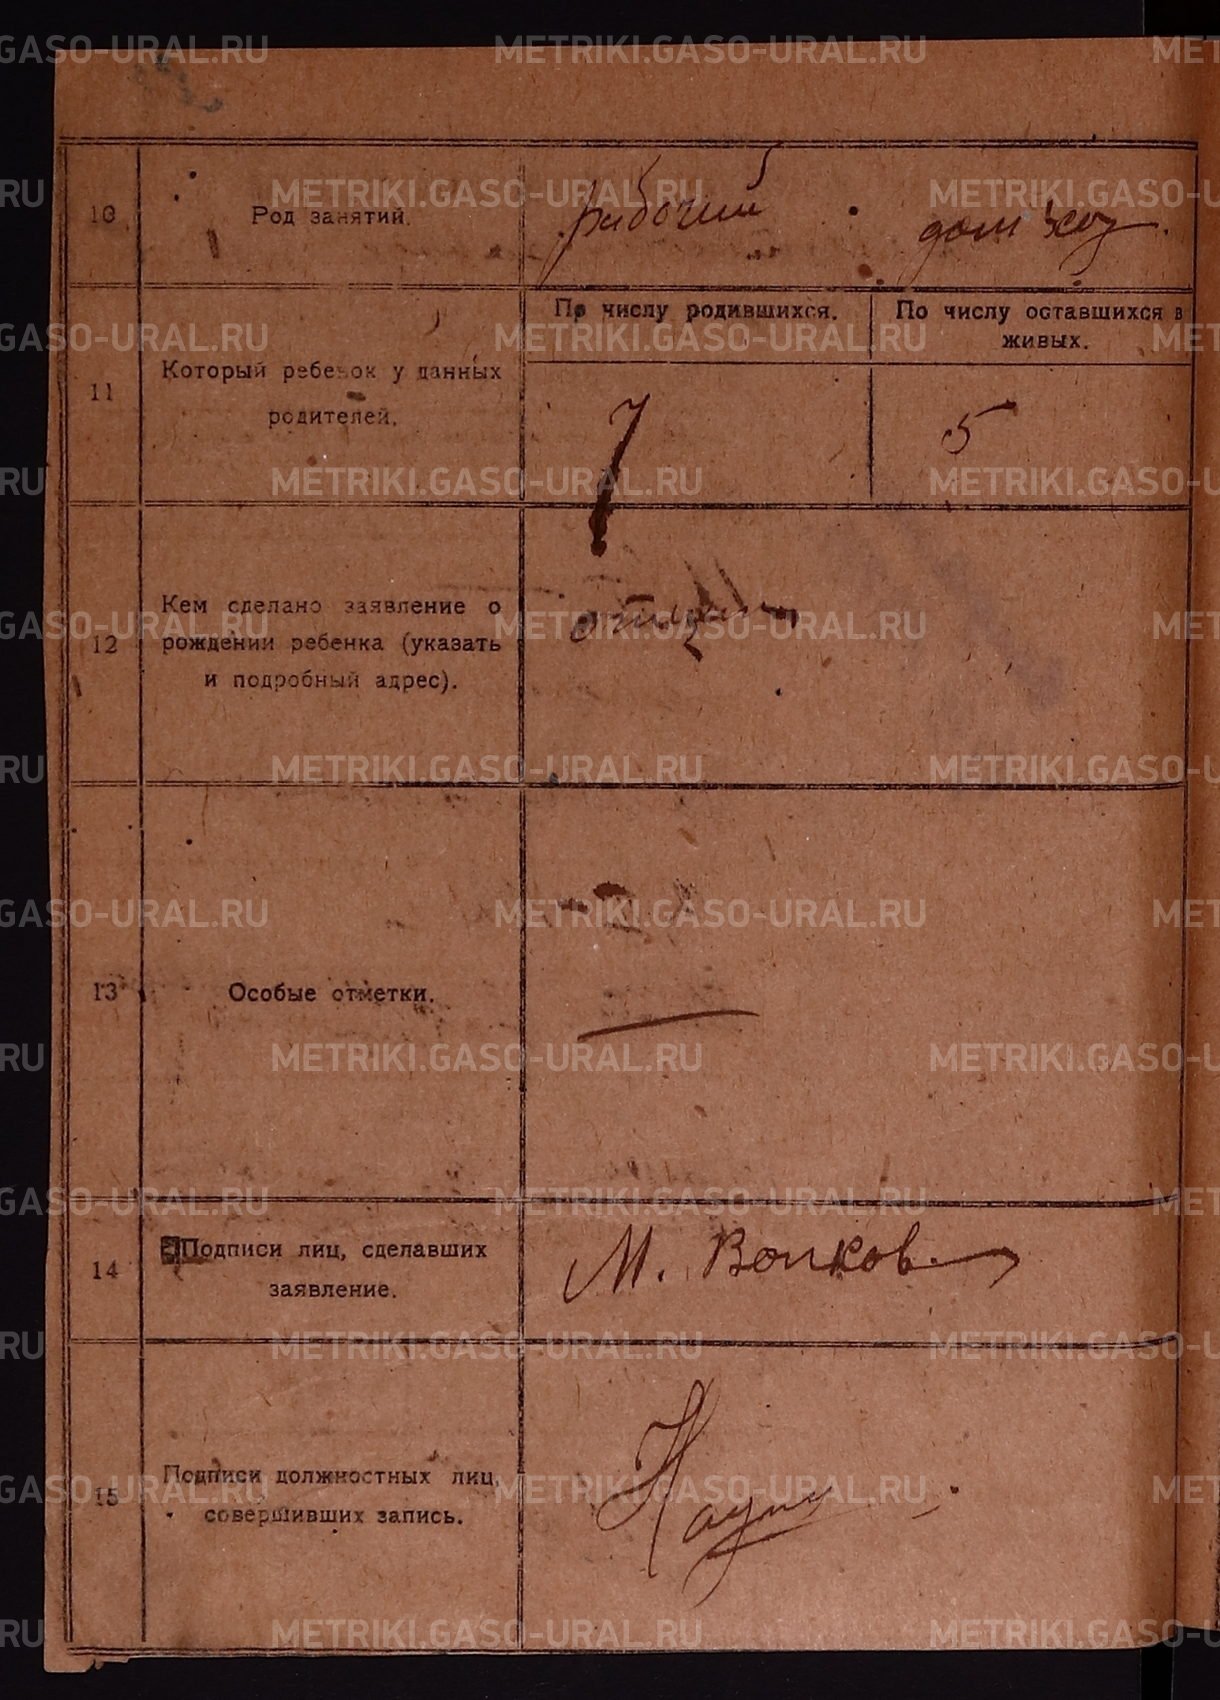 10 Род занятий. рабочий дом хоз.
По числу родившихся. По числу оставшихся в
живых.
11 Который ребенок у данных
родителей.
7 5
Кем сделано заявление о
12 рождении ребенка (указать
и подробный адрес).
отцом
13 Особые отметки. —
14 Подписи лиц, сделавших
заявление.
М. Волков
15 Подписи должностных лиц,
совершивших запись.
METRIKI.GASO-URAL.RU